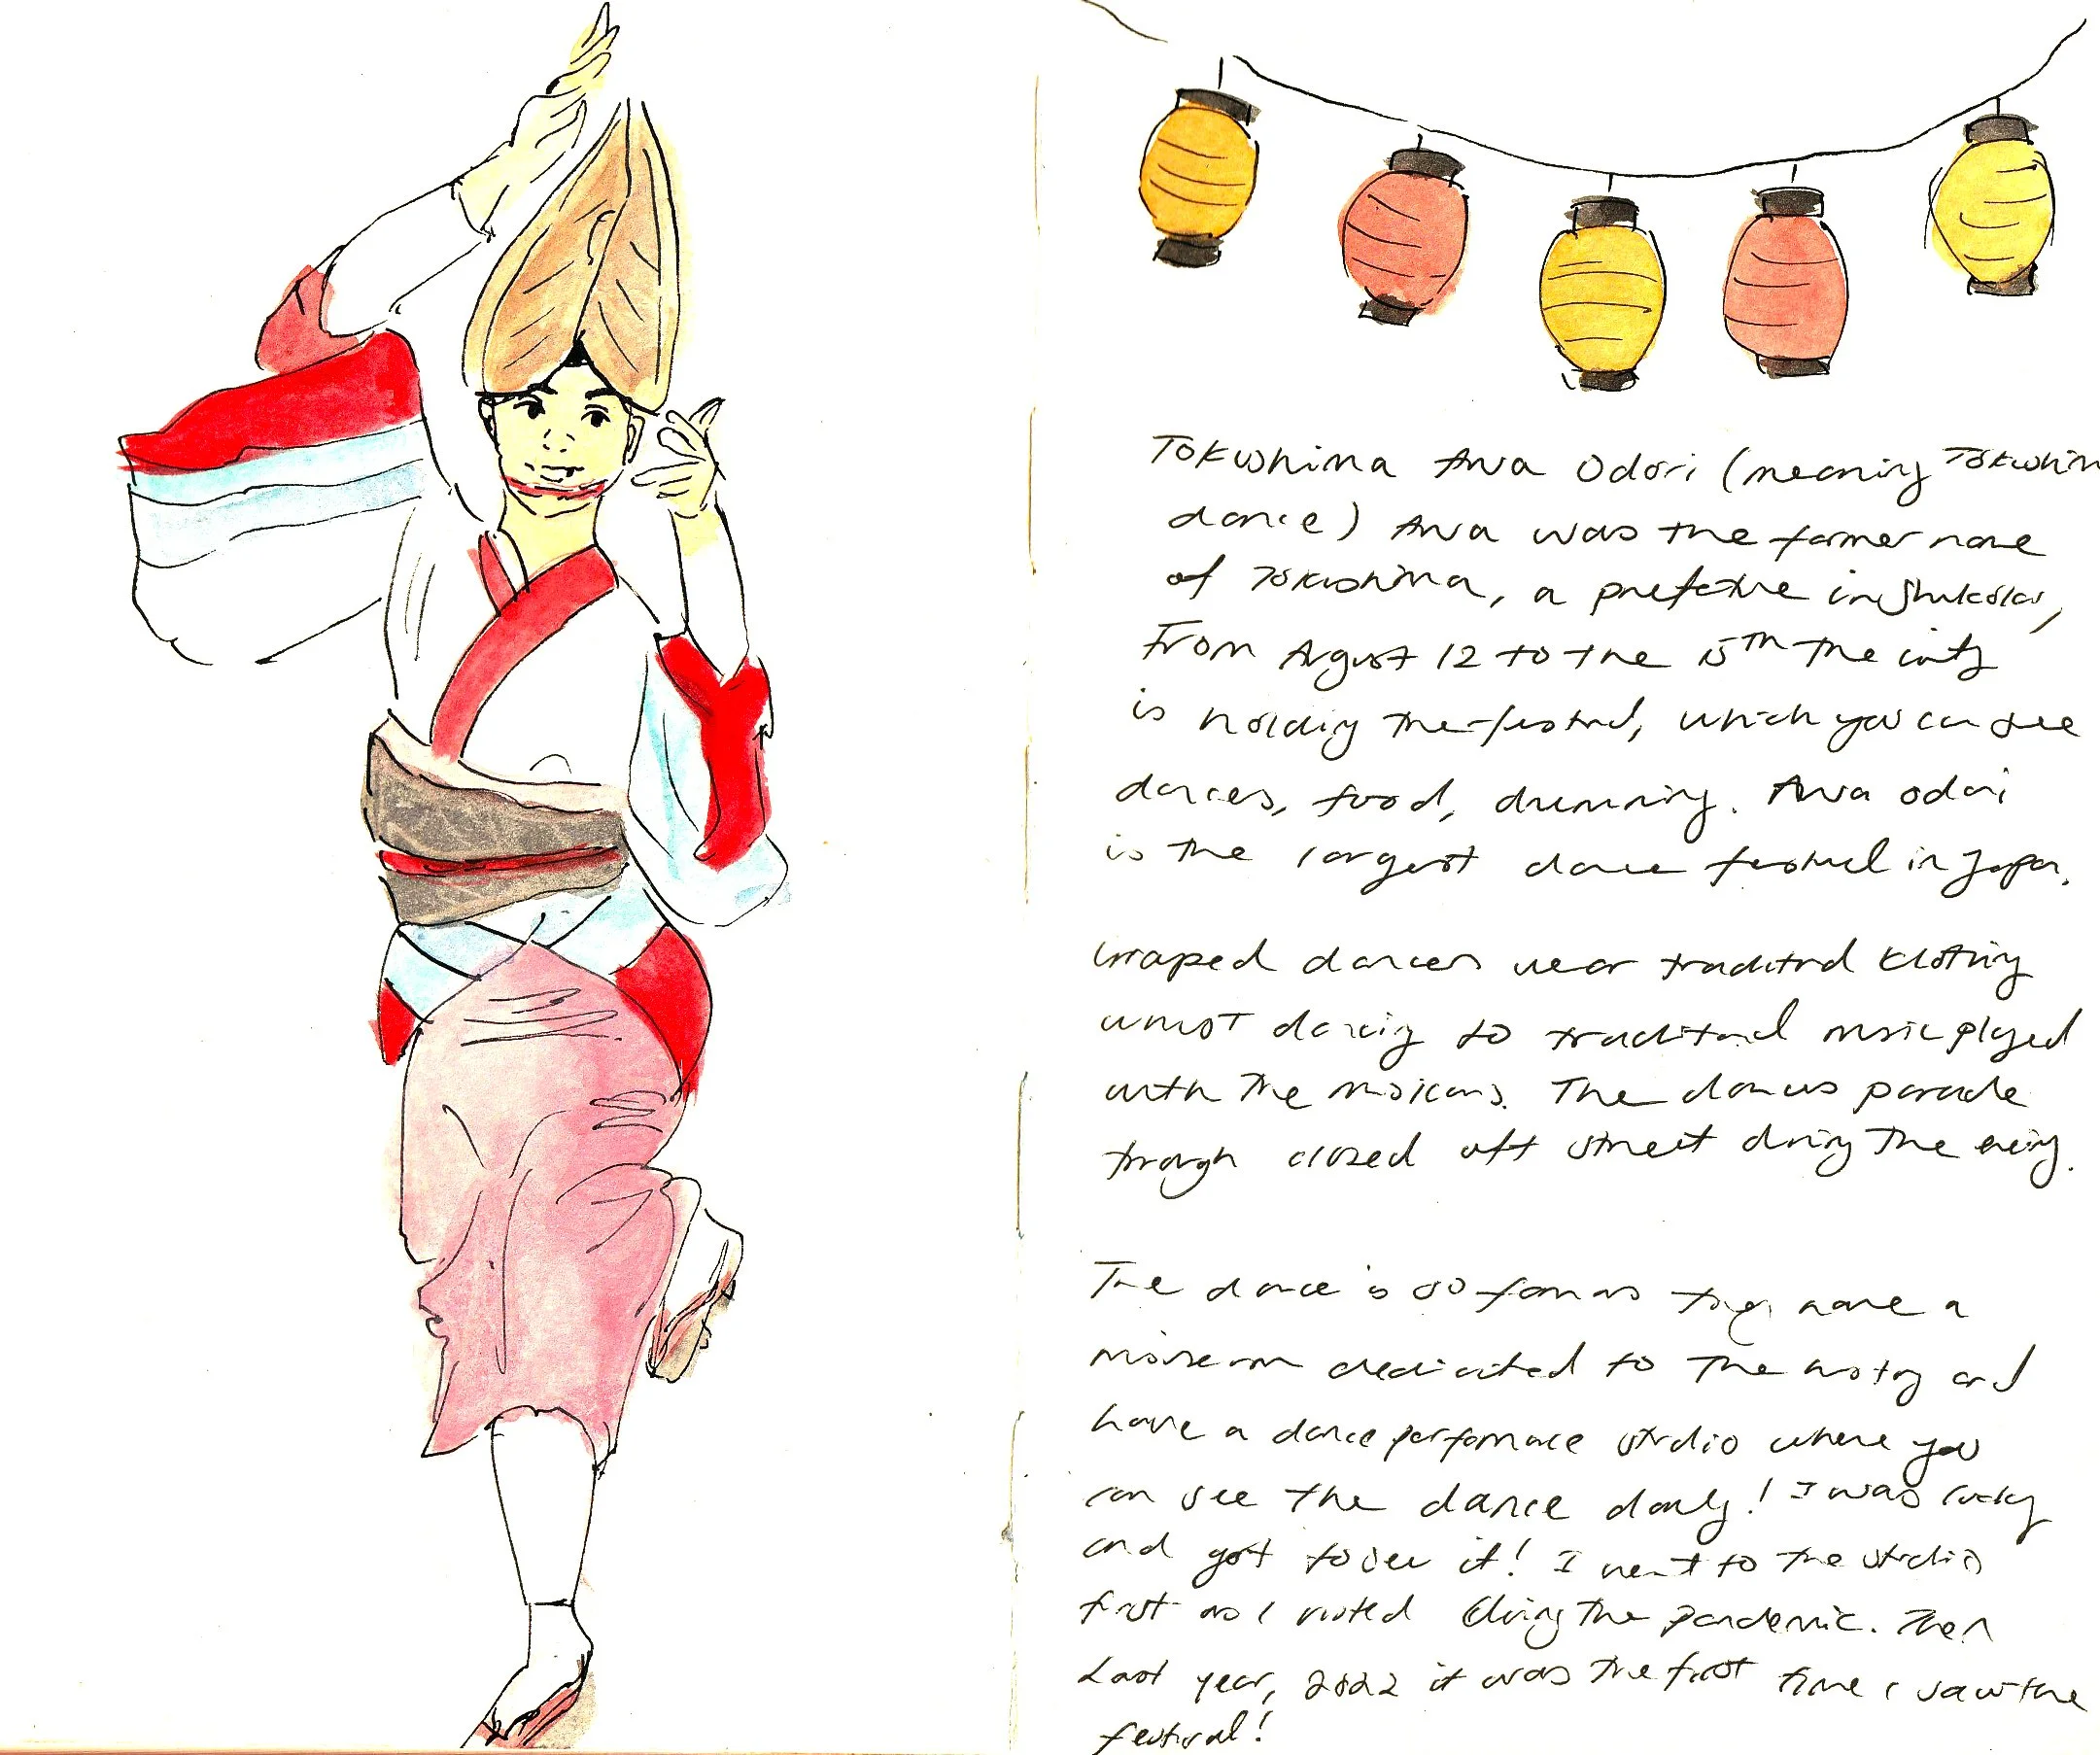 Tokushima Awa Odori (meaning Tokushim
dance) Awa was the former name
of Tokushima, a prefecture in Shikoku,
From August 12 to the 15th the city
is holding the festival, which you can see
dances, food, drumming. Awa odori
is the largest dance festival in Japan.
dancers wear traditional
dancing to traditional music played
with the musicians. The dancers parade
through closed off street during the evening.
The dance is so famous they have a
museum dedicated to the history and
have a dance performance studio where you
can see the dance daily! I was lucky
and got to see it! I went to the studio
first as I visited during the pandemic. Then
Last year, 2022 it was the first time I saw the
festival!